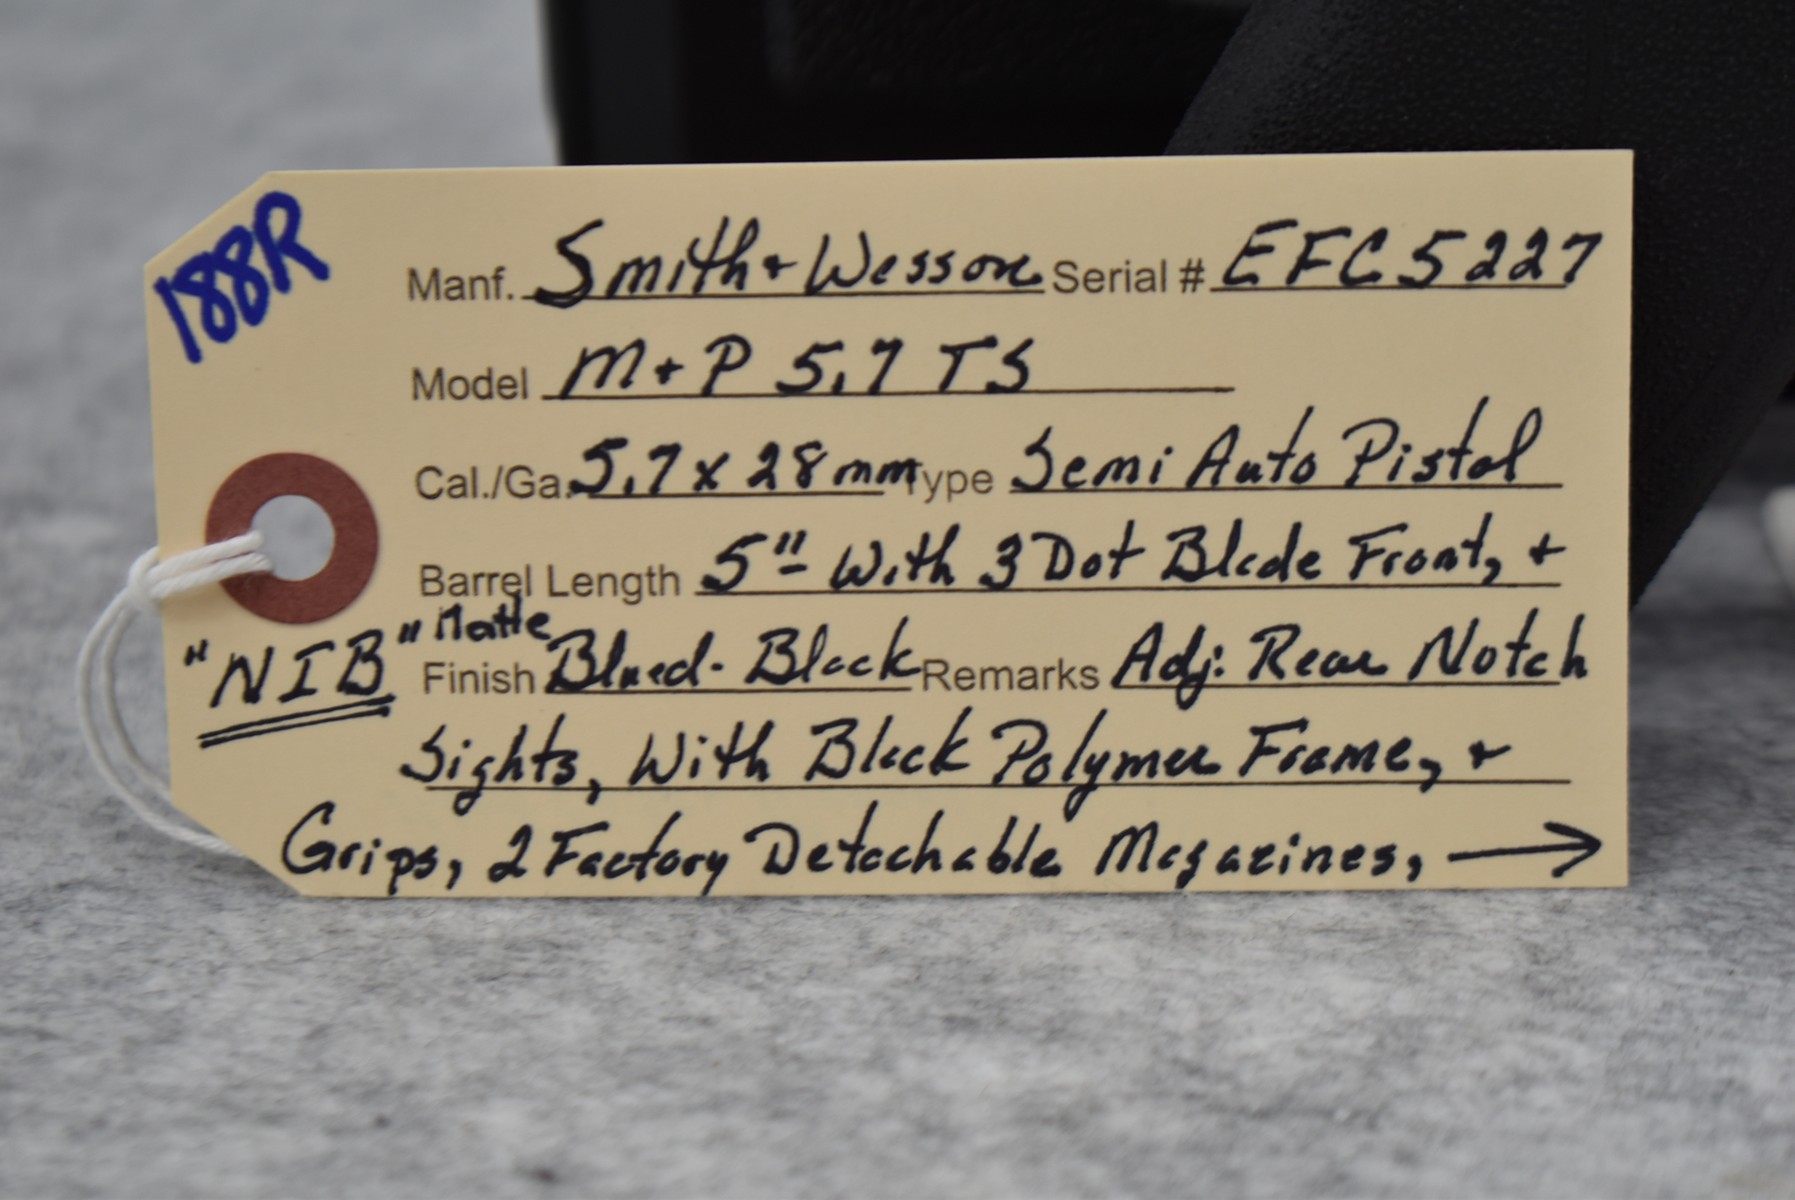 188R
Manf. Smith + Wesson Serial # EFC5227
Model M+P 5.7 TS
Cal./Ga. 5.7 x 28mm Type Semi Auto Pistol
Barrel Length 5" With 3 Dot Blade Front, +
"NIB" Matte
Finish Blued - Black Remarks Adj: Rear Notch
Sights, With Black Polymer Frame, +
Grips, 2 Factory Detachable Magazines, →